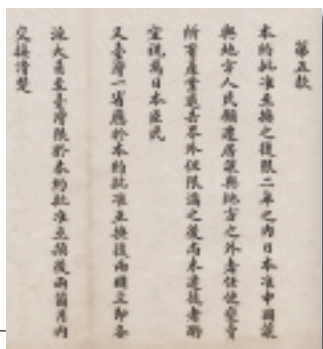 第五款
本約批准互換之後限二年之內日本准中國讓
與地方人民願遷居讓與地方之外者任便變賣
所有產業退去界外但限滿之後尚未遷徙者酌
宜視為日本臣民
又臺灣一省應於本約批准互換後兩國立即各
派大員至臺灣限於本約批准互換後兩個月內
交接清楚